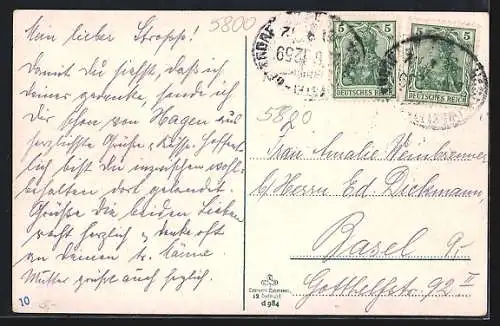 5800
Mein lieber Stropp!
Damit du siehst, daß ich
deiner gedenke, sende ich
dir schon von Hagen aus
herzlichste Grüße & Küsse. Hoffent-
lich bist du inzwischen wohl-
behalten dort gelandet.
Grüße die beiden Lieben
recht herzlich & denke oft
an deinen tr. Männe.
Mutter grüßt auch herzlich.
10
5
5
DEUTSCHES REICH
DEUTSCHES REICH
5800
Frau Amalie Weinbrenner
b/ Herrn Ed. Dickmann,
Basel
Gotthelfstr. 92 II
d 984